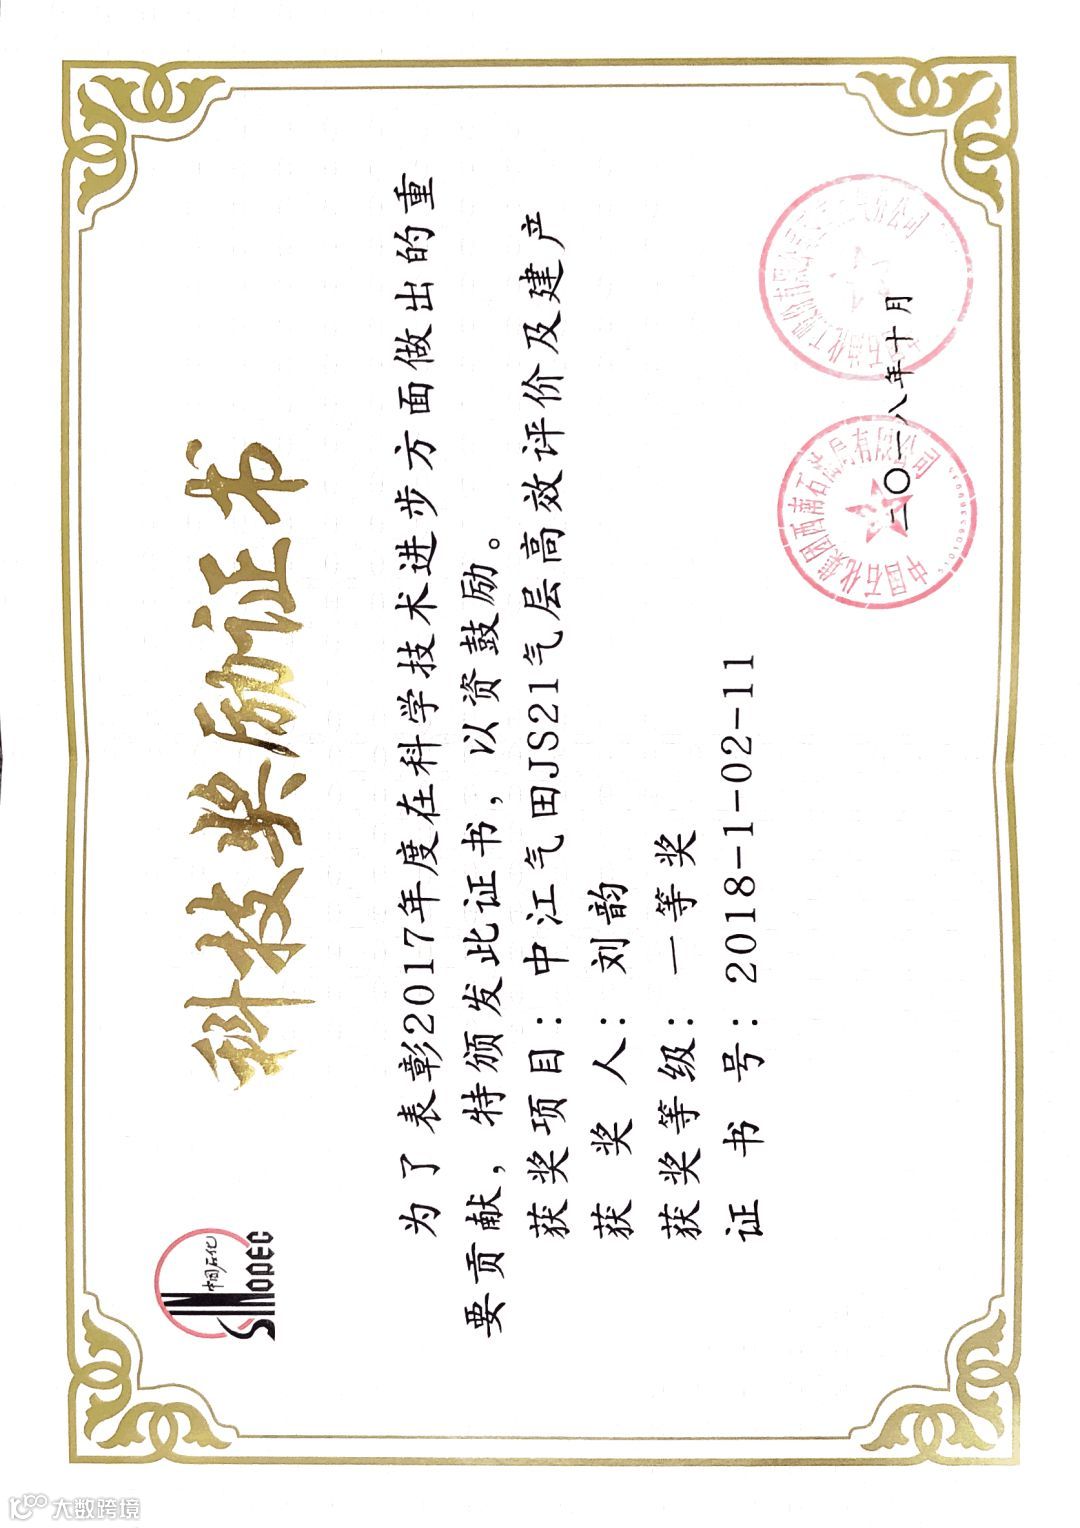 中国石化
SINOPEC
科技奖励证书
为了表彰2017年度在科学技术进步方面做出的重
要贡献，特颁发此证书，以资鼓励。
获奖项目：中江气田JS21气层高效评价及建产
获 奖 人：刘韵
获奖等级：一等奖
证 书 号：2018-1-02-11
中国石化集团西南石油局有限公司
二〇一八年十月
大数跨境